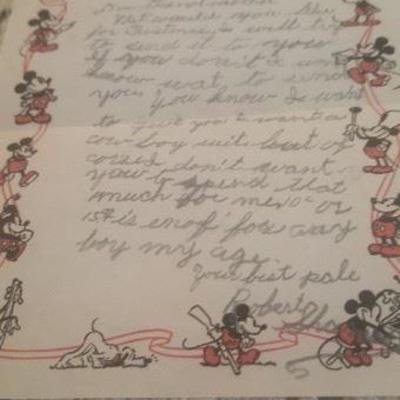 Dear Grandmother
What would you like
for Christmas I will try
to send it to you
If you don't I won't
know wat to send
you. You know I want
to just you I want a
cow boy suit but of
corse I don't want
you to spend that
much for me 10¢ or
15¢ is enof for eny
boy my age.
Your best pale
Robert